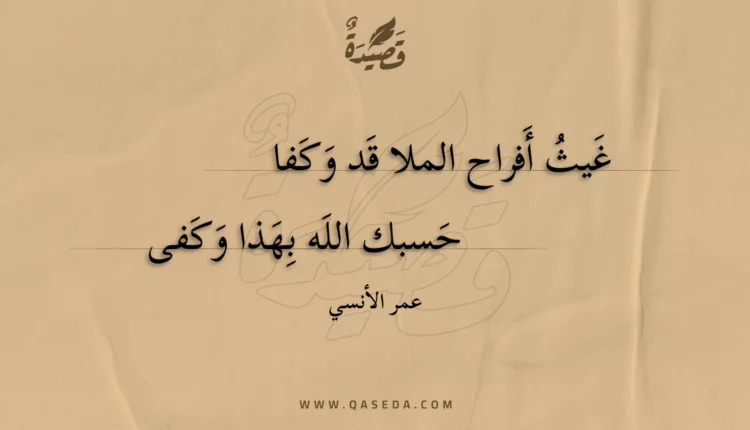 قَصِيْدَةٌ
غَيثُ أَفراح الملا قَد وَكَفا
حَسبك اللَه بِهَذا وَكَفى
عمر الأنسي
WWW.QASEDA.COM